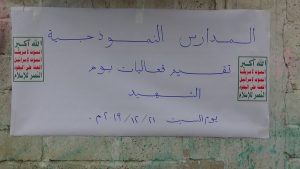 المدارس النموذجية
تقيم فعاليات يوم
الشهيد
يوم السبت ٢٠١٩/١٢/٢١م.
الله أكبر
الموت لأمريكا
الموت لإسرائيل
اللعنة على اليهود
النصر للإسلام
الله أكبر
الموت لأمريكا
الموت لإسرائيل
اللعنة على اليهود
النصر للإسلام